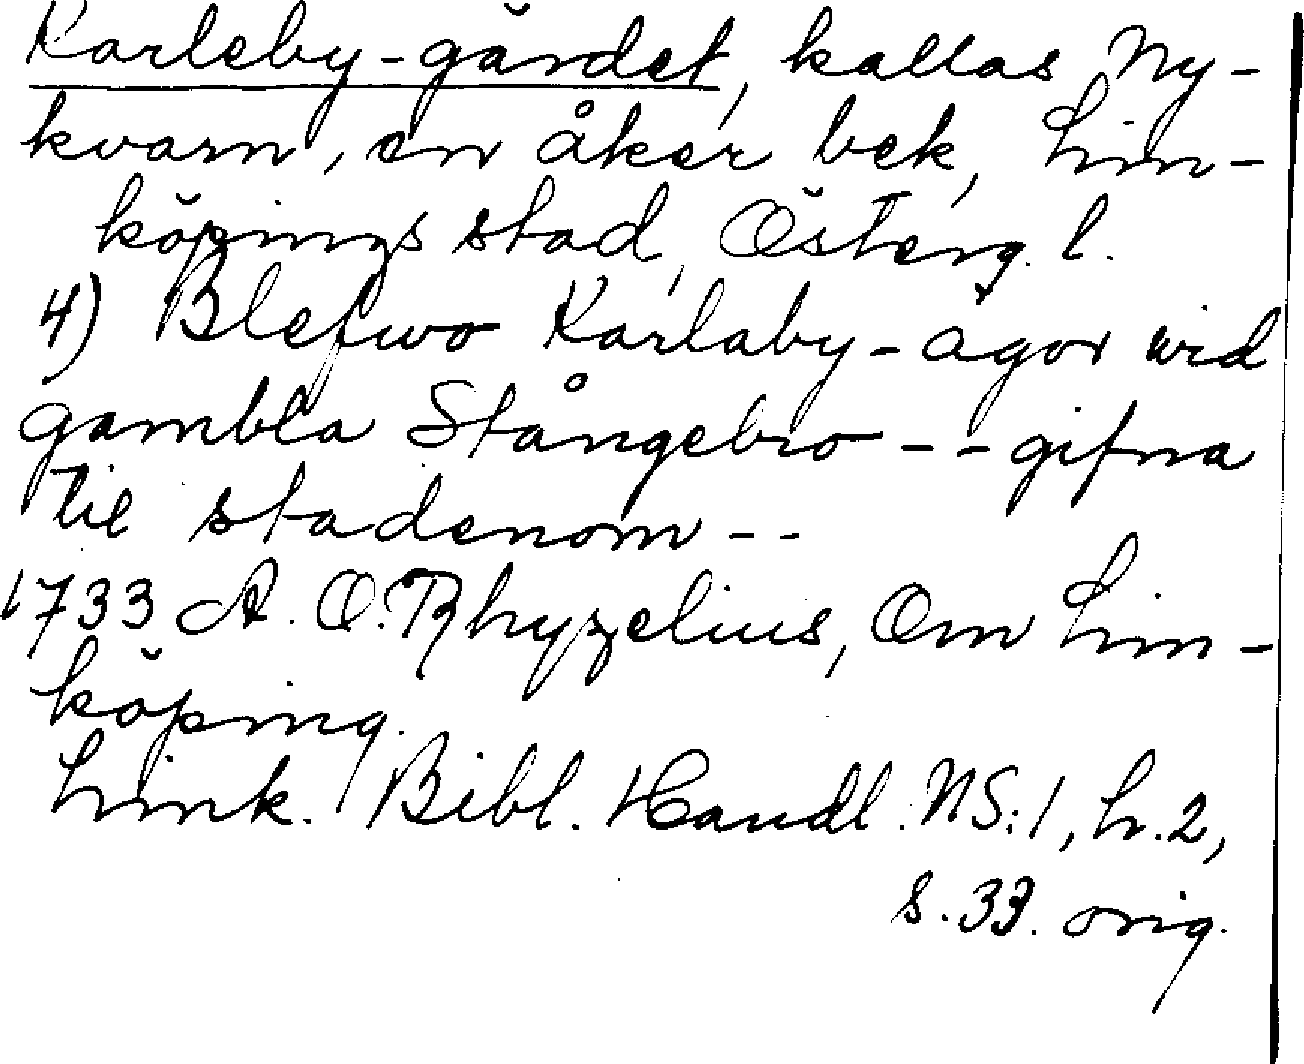 Karleby-gärdet, kallas Ny-
kvarn, en åker bek, Lin-
köpings stad, Österg. l.
4) Blefwo Karlaby-ägor wid
gambla Stångebro -- gifna
til stadenom --
1733 A. O. Rhyzelius, Om Lin-
köping.
Link. Bibl. Handl. NS:1, h.2,
s. 33. orig.